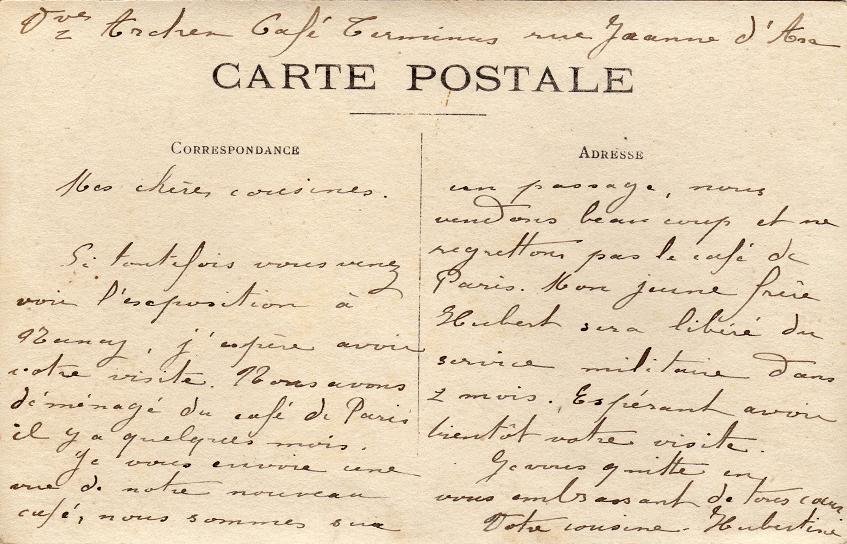 Vve Archen Café Terminus rue Jeanne d'Arc
CARTE POSTALE
CORRESPONDANCE
Mes chères cousines.
Si toutefois vous venez
voir l'exposition à
Nancy, j'espère avoir
votre visite. Nous avons
déménagé du café de Paris
il y a quelques mois.
Je vous envoie une
vue de notre nouveau
café, nous sommes sur
ADRESSE
un passage, nous
vendons beaucoup et ne
regrettons pas le café de
Paris. Mon jeune frère
Hubert sera libéré du
service militaire dans
2 mois. Espérant avoir
bientôt votre visite.
Je vous quitte en
vous embrassant de tous cœur
Votre cousine - Hubertine